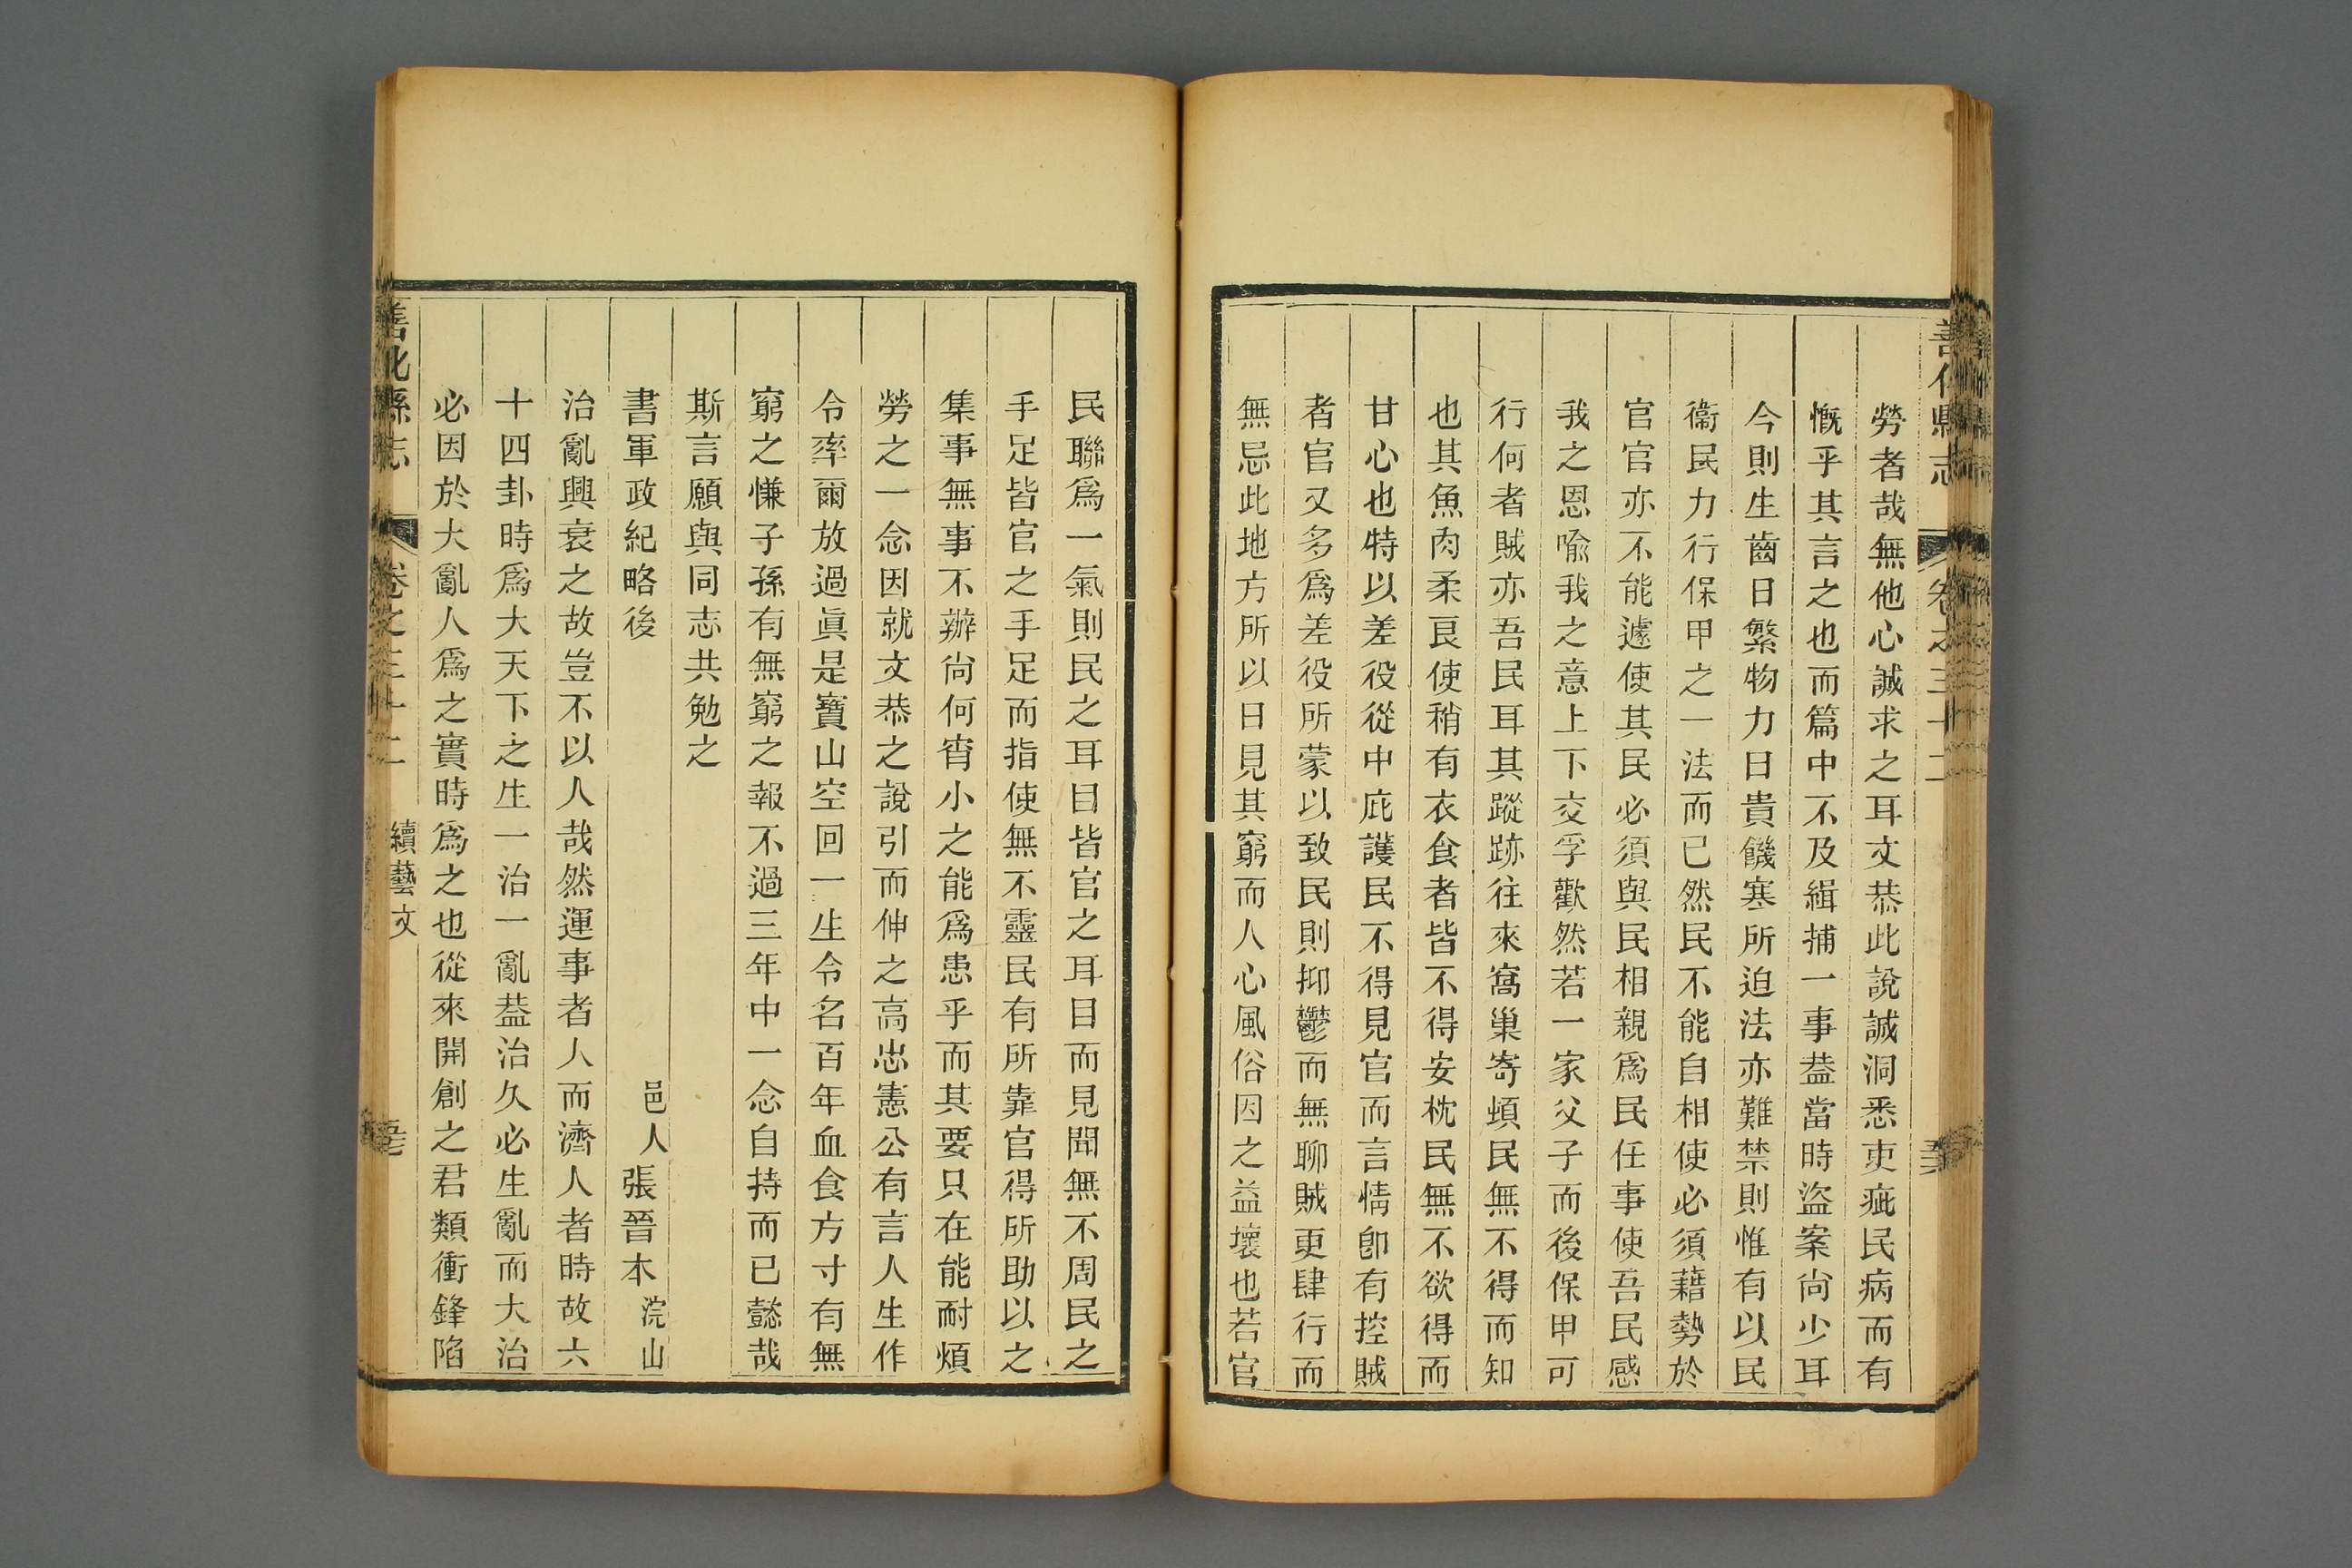 善化縣志 卷之三十二
勞者哉無他心誠求之耳文恭此說誠洞悉吏疵民病而有
慨乎其言之也而篇中不及緝捕一事葢當時盜案尙少耳
今則生齒日繁物力日貴饑寒所迫法亦難禁則惟有以民
衞民力行保甲之一法而已然民不能自相使必須藉勢於
官官亦不能遽使其民必須與民相親爲民任事使吾民感
我之恩喩我之意上下交孚歡然若一家父子而後保甲可
行何者賊亦吾民耳其蹤跡往來窩巢寄頓民無不得而知
也其魚肉柔良使稍有衣食者皆不得安枕民無不欲得而
甘心也特以差役從中庇護民不得見官而言情卽有控賊
者官又多爲差役所蒙以致民則抑鬱而無聊賊更肆行而
無忌此地方所以日見其窮而人心風俗因之益壞也若官
民聯爲一氣則民之耳目皆官之耳目而見聞無不周民之
手足皆官之手足而指使無不靈民有所靠官得所助以之
集事無事不辦尙何宵小之能爲患乎而其要只在能耐煩
勞之一念因就文恭之說引而伸之高忠憲公有言人生作
令率爾放過眞是寶山空回一生令名百年血食方寸有無
窮之慊子孫有無窮之報不過三年中一念自持而已懿哉
斯言願與同志共勉之
書軍政紀略後 邑人張晉本浣山
治亂興衰之故豈不以人哉然運事者人而濟人者時故六
十四卦時爲大天下之生一治一亂葢治久必生亂而大治
必因於大亂人爲之實時爲之也從來開創之君類衝鋒陷
善化縣志 卷之三十二 續藝文